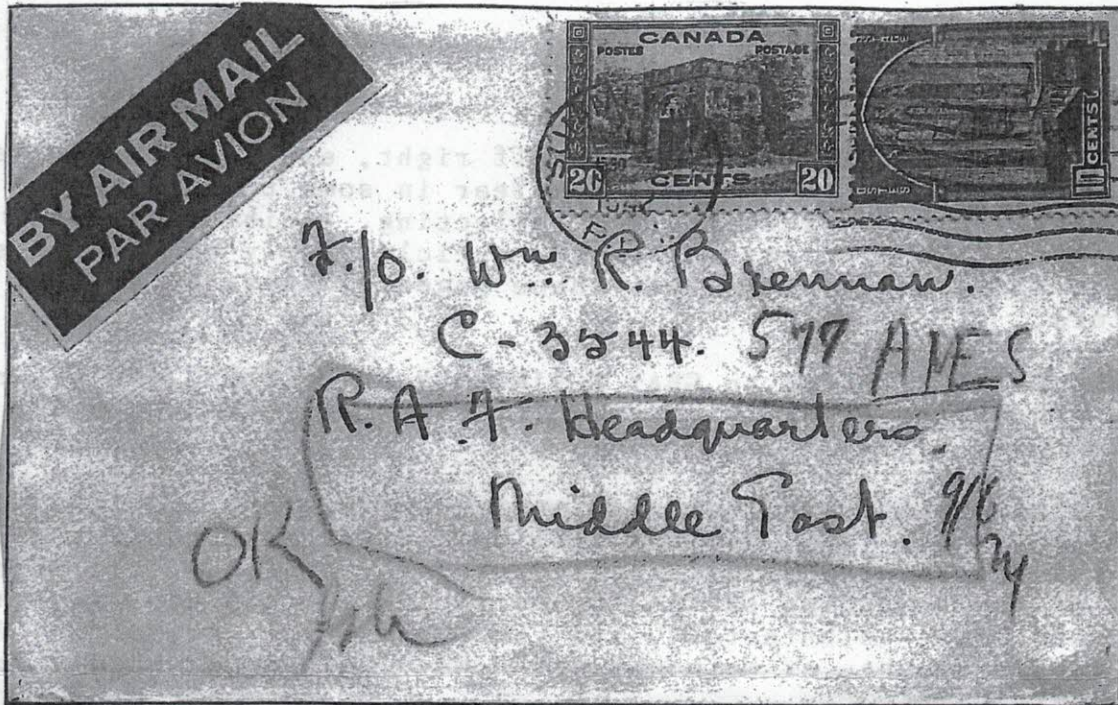 BY AIR MAIL
PAR AVION
CANADA
POSTES POSTAGE
20 CENTS 20
10 CENTS
F/O. Wm. R. Brennan.
C-3544. 577 AMES
R.A.F. Headquarters.
Middle East.
OK